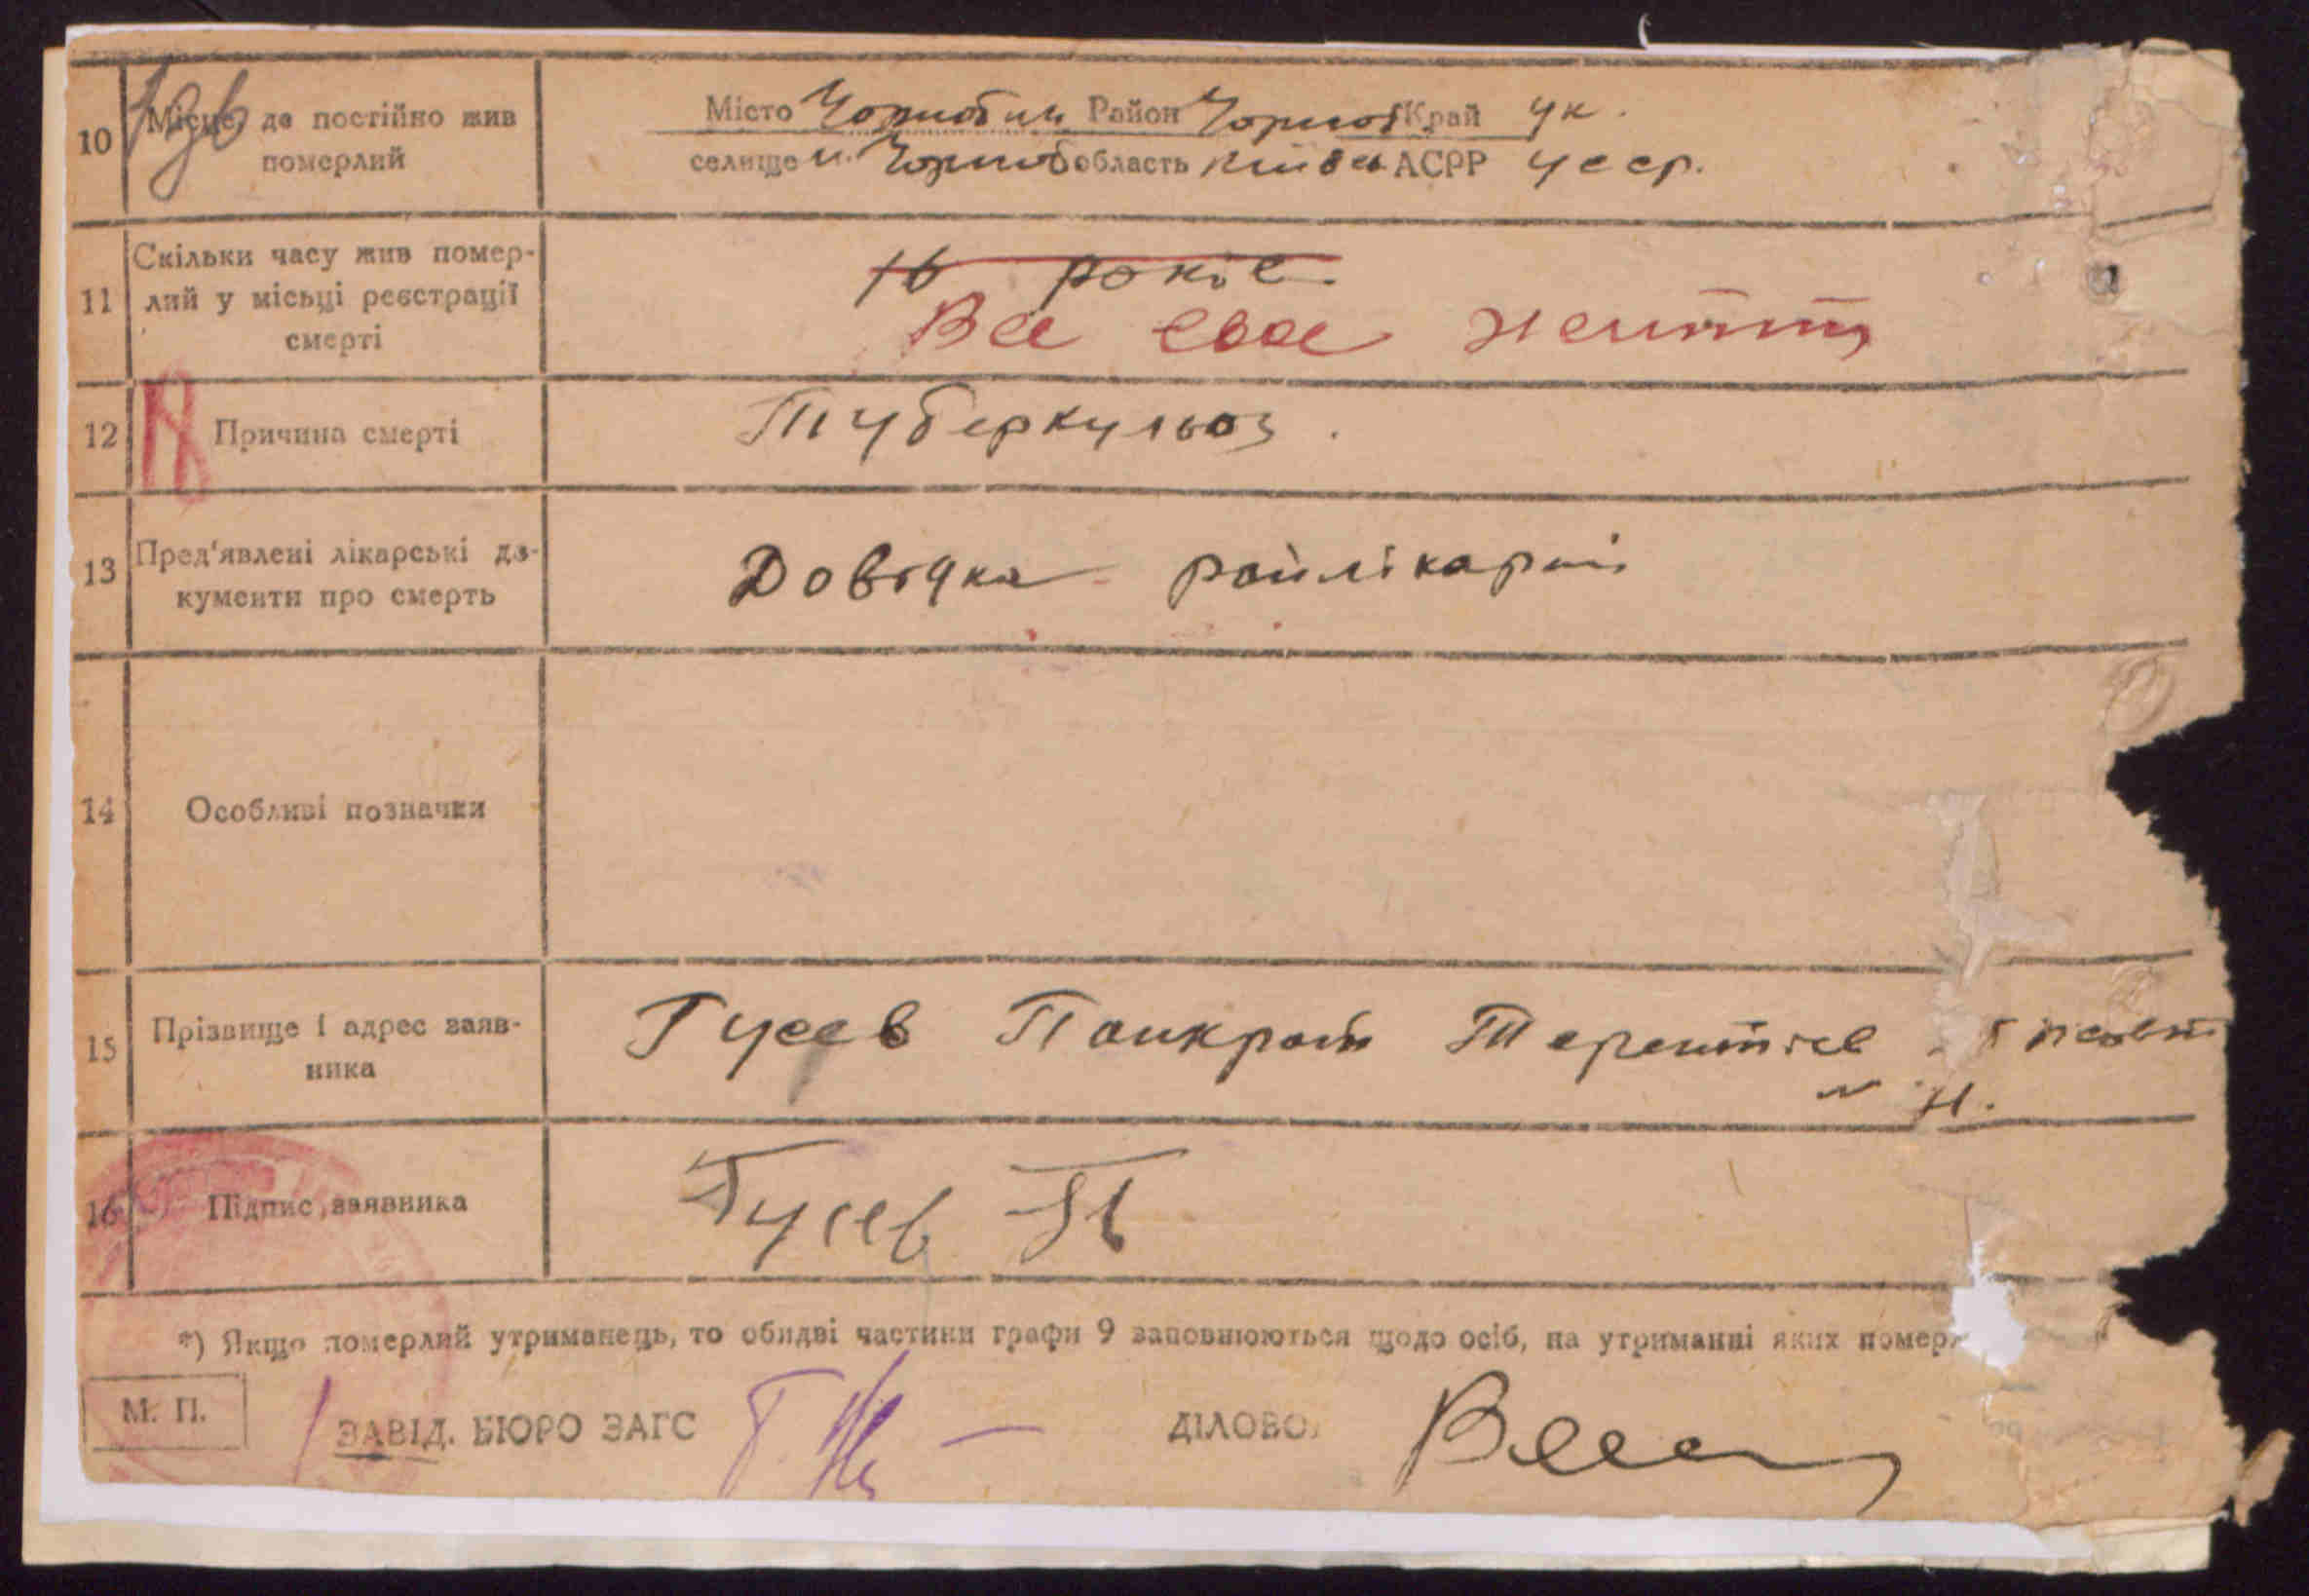 10 Місце, де постійно жив
померлий
Місто Чорнобиль Район Чорноб Край Ук.
селище м. Чорноб область Київсь АСРР УССР.
11 Скільки часу жив помер-
лий у місьці реєстрації
смерті
16 років.
Все своє життя
12 Причина смерті
Туберкульоз.
13 Пред'явлені лікарські до-
кументи про смерть
Довідка райлікарні
14 Особливі позначки
15 Прізвище і адрес заяв-
ника
Гусев Панкрат Терентієв
16 Підпис заявника
Гусев П
*) Якщо померлий утриманець, то обидві частини графи 9 заповнюються щодо осіб, на утриманні яких помер
М. П.
ЗАВІД. БЮРО ЗАГС
ДІЛОВО